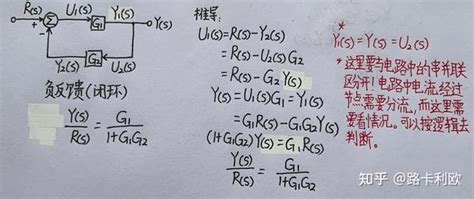 R(s) + Σ U₁(s) G₁ Y₁(s) Y(s)
−
Y₂(s) G₂ U₂(s)
负反馈(闭环)
Y(s)/R(s) = G₁/(1+G₁G₂)
推导:
U₁(s)=R(s)-Y₂(s)
=R(s)-U₂(s)G₂
=R(s)-G₂Y(s)
Y(s)=U₁(s)G₁=Y₁(s)
=G₁R(s)-G₁G₂Y(s)
(1+G₁G₂)Y(s)=G₁R(s)
Y(s)/R(s) = G₁/(1+G₁G₂)
*
Y₁(s)=Y(s)=U₂(s)
*这里要与电路中的串并联
区分开!电路中电流经过
节点需要分流,而这里需
要看情况。可以按逻辑去
判断。
知乎 @路卡利欧